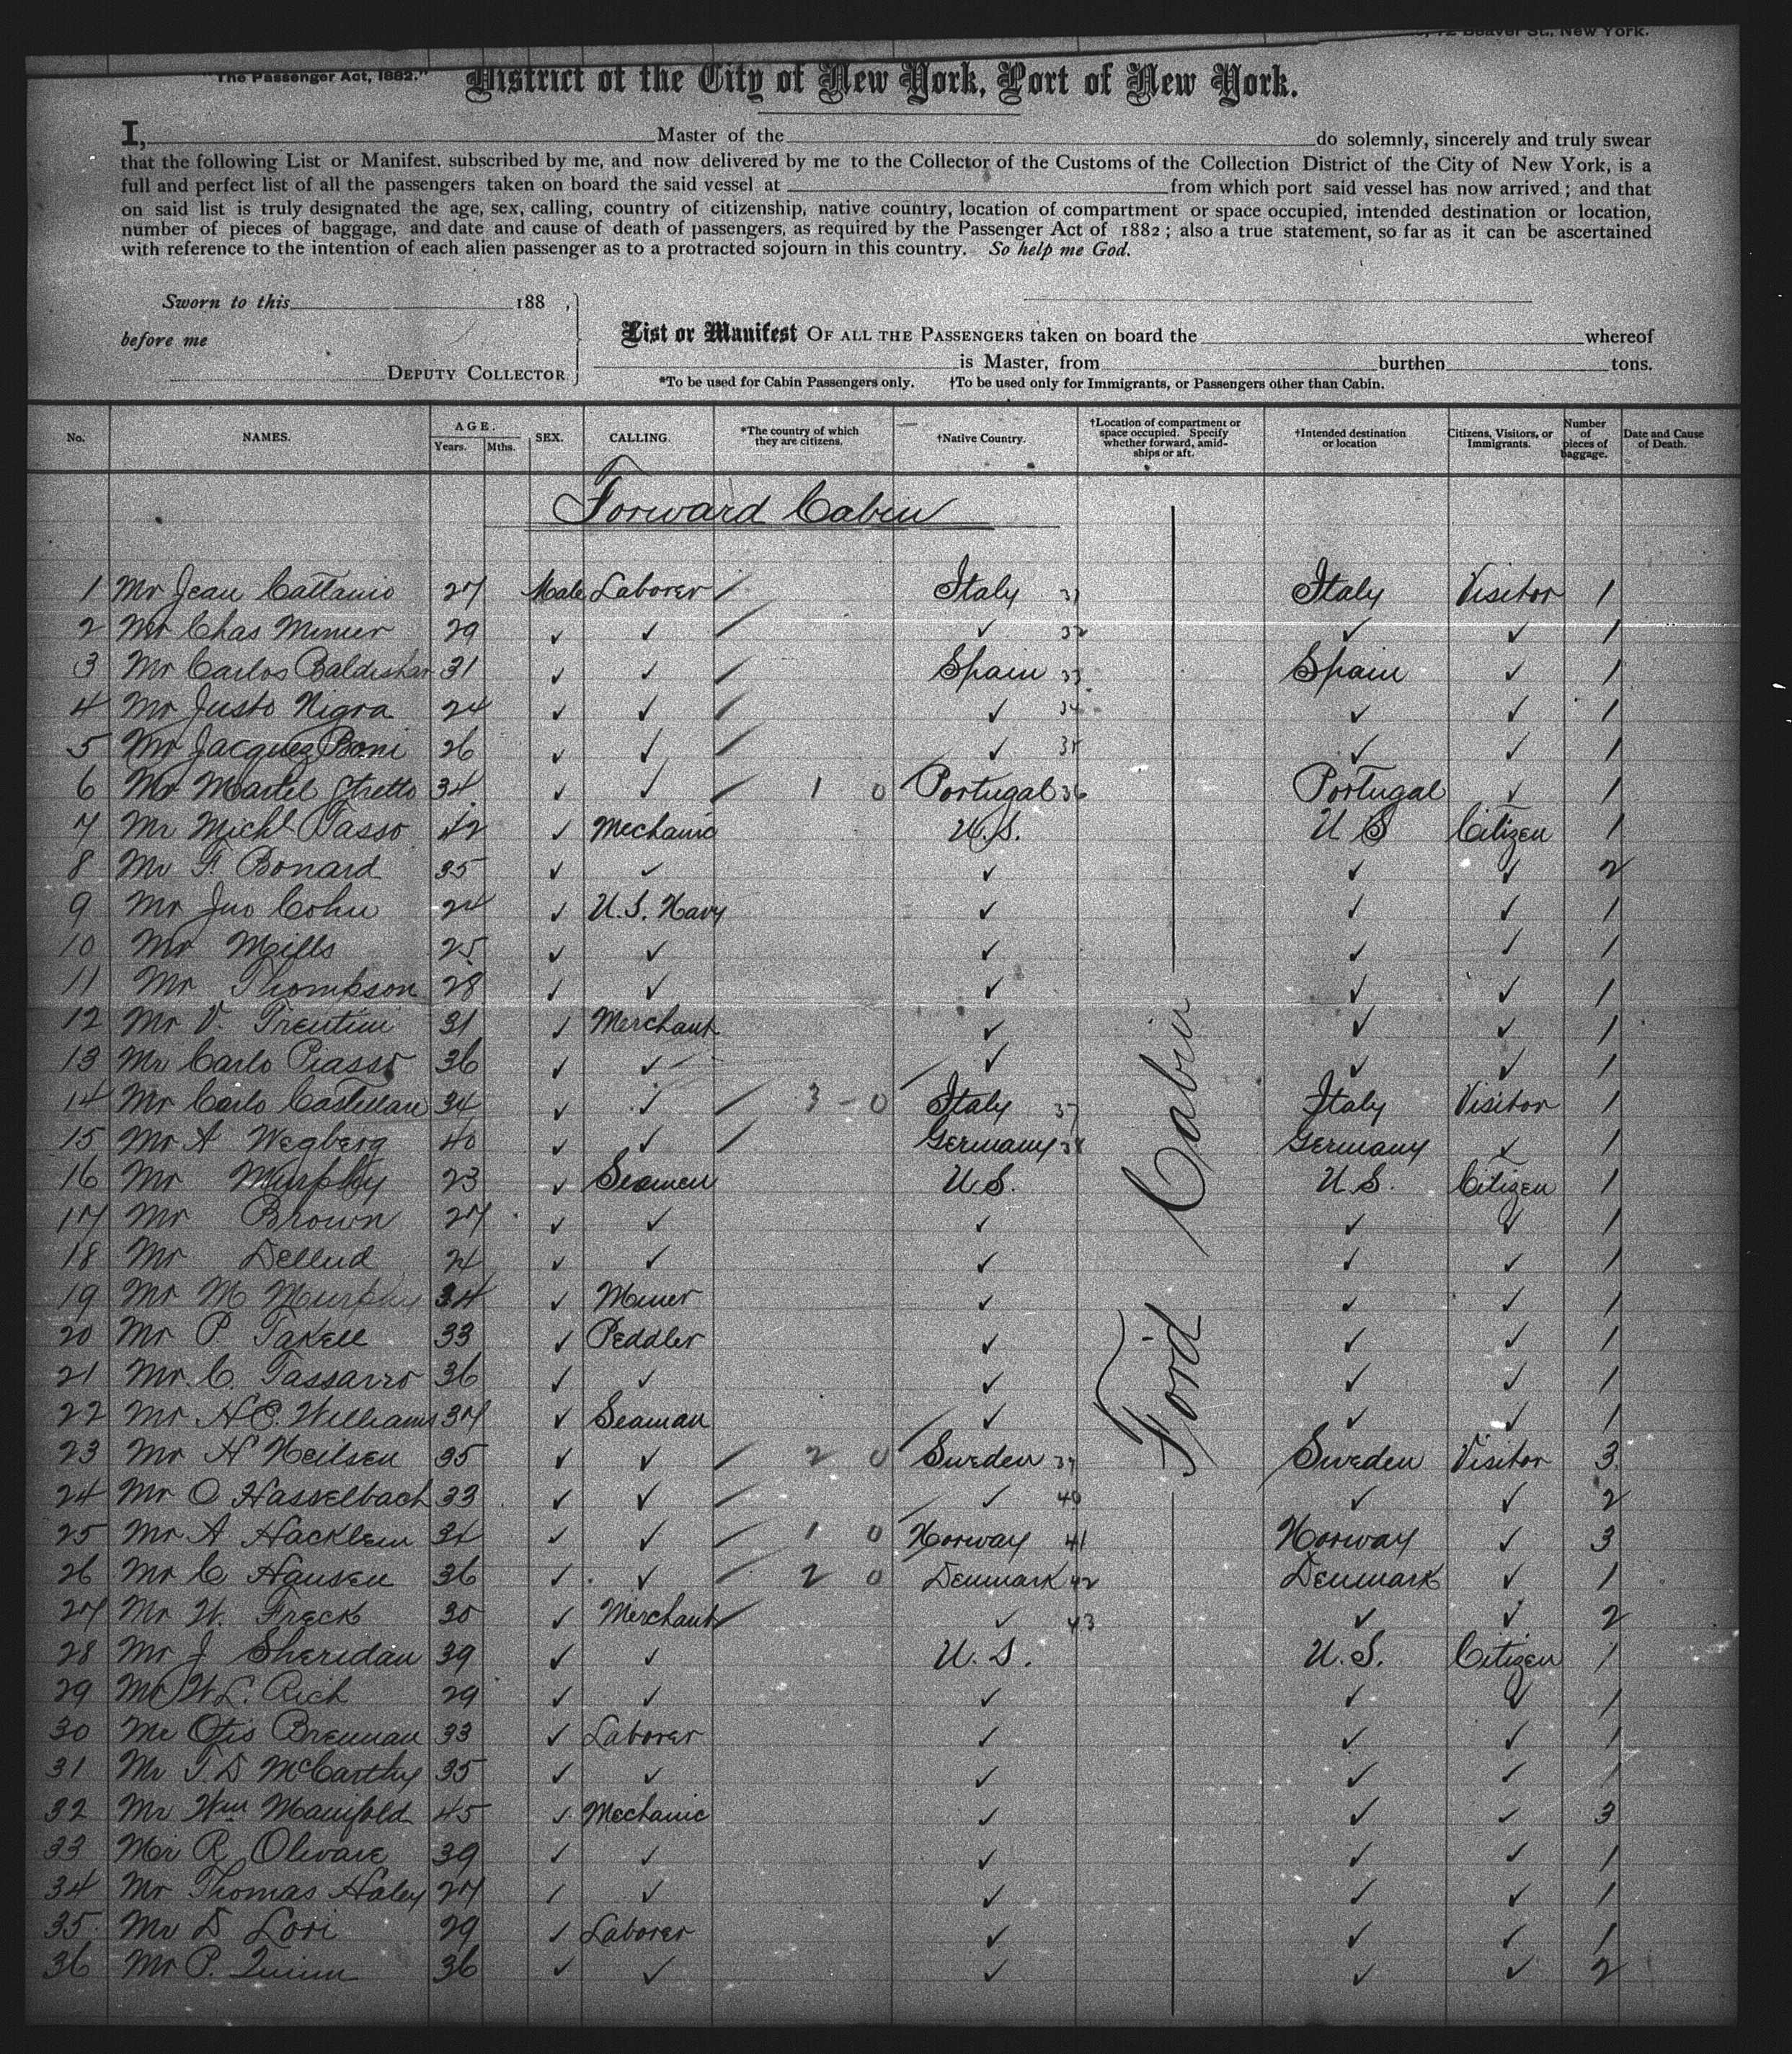 72 Beaver St., New York.
"The Passenger Act, 1882."
District of the City of New York, Port of New York.
I, Master of the do solemnly, sincerely and truly swear
that the following List or Manifest, subscribed by me, and now delivered by me to the Collector of the Customs of the Collection District of the City of New York, is a
full and perfect list of all the passengers taken on board the said vessel at from which port said vessel has now arrived; and that
on said list is truly designated the age, sex, calling, country of citizenship, native country, location of compartment or space occupied, intended destination or location,
number of pieces of baggage, and date and cause of death of passengers, as required by the Passenger Act of 1882; also a true statement, so far as it can be ascertained
with reference to the intention of each alien passenger as to a protracted sojourn in this country. So help me God.
Sworn to this 188 ,
before me
DEPUTY COLLECTOR
List or Manifest OF ALL THE PASSENGERS taken on board the whereof
is Master, from burthen tons.
*To be used for Cabin Passengers only. †To be used only for Immigrants, or Passengers other than Cabin.
No. NAMES. AGE. Years. Mths. SEX. CALLING. *The country of which they are citizens. †Native Country. †Location of compartment or space occupied. Specify whether forward, amidships or aft. †Intended destination or location Citizens, Visitors, or Immigrants. Number of pieces of baggage. Date and Cause of Death.
Forward Cabin
1 Mr Jean Cattanio 27 Male Laborer / Italy 31 Italy Visitor 1
2 Mr Chas 29 ✓ ✓ / ✓ 32 ✓ ✓ 1
3 Mr Carlos 31 ✓ ✓ / Spain 33 Spain ✓ 1
4 Mr Justo Nigra 24 ✓ ✓ / ✓ 34 ✓ ✓ 1
5 Mr Jacquez Boni 26 ✓ ✓ / ✓ 35 ✓ ✓ 1
6 Mr Martel Stretto 34 ✓ ✓ / 1 0 Portugal 36 Portugal ✓ 1
7 Mr Michl Tasso 42 ✓ Mechanic U.S. U S Citizen 1
8 Mr F. Bonard 35 ✓ ✓ ✓ ✓ ✓ 2
9 Mr Jno Cohn 24 ✓ U.S. Navy ✓ ✓ ✓ 1
10 Mr Mills 25 ✓ ✓ ✓ ✓ ✓ 1
11 Mr Thompson 28 ✓ ✓ ✓ ✓ ✓ 1
12 Mr V. Trentini 31 ✓ Merchant ✓ ✓ ✓ 1
13 Mr Carlo Piasso 36 ✓ ✓ ✓ ✓ ✓ 1
14 Mr Carlo Castellan 34 ✓ ✓ / 3 - 0 Italy 37 Italy Visitor 1
15 Mr A Wegberg 40 ✓ ✓ / Germany 38 Germany ✓ 1
16 Mr Murphy 23 ✓ Seamen U.S. U.S. Citizen 1
17 Mr Brown 27 ✓ ✓ ✓ ✓ ✓ 1
18 Mr Dellud 24 ✓ ✓ ✓ ✓ ✓ 1
19 Mr M Murphy 34 ✓ Miner ✓ ✓ ✓ 1
20 Mr P Takell 33 ✓ Peddler ✓ ✓ ✓ 1
21 Mr. C. Tassarro 36 ✓ ✓ ✓ ✓ ✓ 1
22 Mr H.E. Williams 37 ✓ Seaman ✓ ✓ ✓ 1
23 Mr H Neilsen 35 ✓ ✓ / 2 0 Sweden 39 Sweden Visitor 3
24 Mr O Hasselbach 33 ✓ ✓ / ✓ 40 ✓ ✓ 2
25 Mr A Hacklein 34 ✓ ✓ / 1 0 Norway 41 Norway ✓ 3
26 Mr C Hansen 36 ✓ ✓ / 2 0 Denmark 42 Denmark ✓ 1
27 Mr W. Freck 30 ✓ Merchant / ✓ 43 ✓ ✓ 2
28 Mr J Sheridan 39 ✓ ✓ U.S. U.S. Citizen 1
29 Mr W.L. Rich 29 ✓ ✓ ✓ ✓ ✓ 1
30 Mr Otis Brennan 33 ✓ Laborer ✓ ✓ ✓ 1
31 Mr T.D McCarthy 35 ✓ ✓ ✓ ✓ ✓ 1
32 Mr Wm Manifold 45 ✓ Mechanic ✓ ✓ ✓ 3
33 Mr R Olivare 39 ✓ ✓ ✓ ✓ ✓ 1
34 Mr Thomas Haley 27 ✓ ✓ ✓ ✓ ✓ 1
35 Mr D Lori 29 ✓ Laborer ✓ ✓ ✓ 1
36 Mr P. Quinn 36 ✓ ✓ ✓ ✓ ✓ 2
Ford Cabin